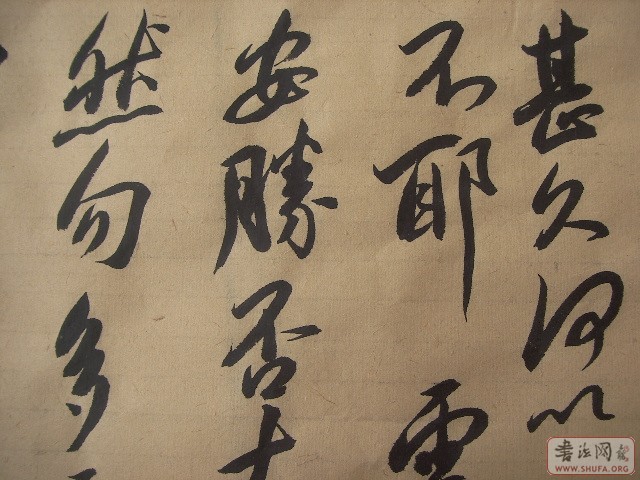 甚久何以
不耶
安勝否
然勿多
书法网
WWW.SHUFA.ORG